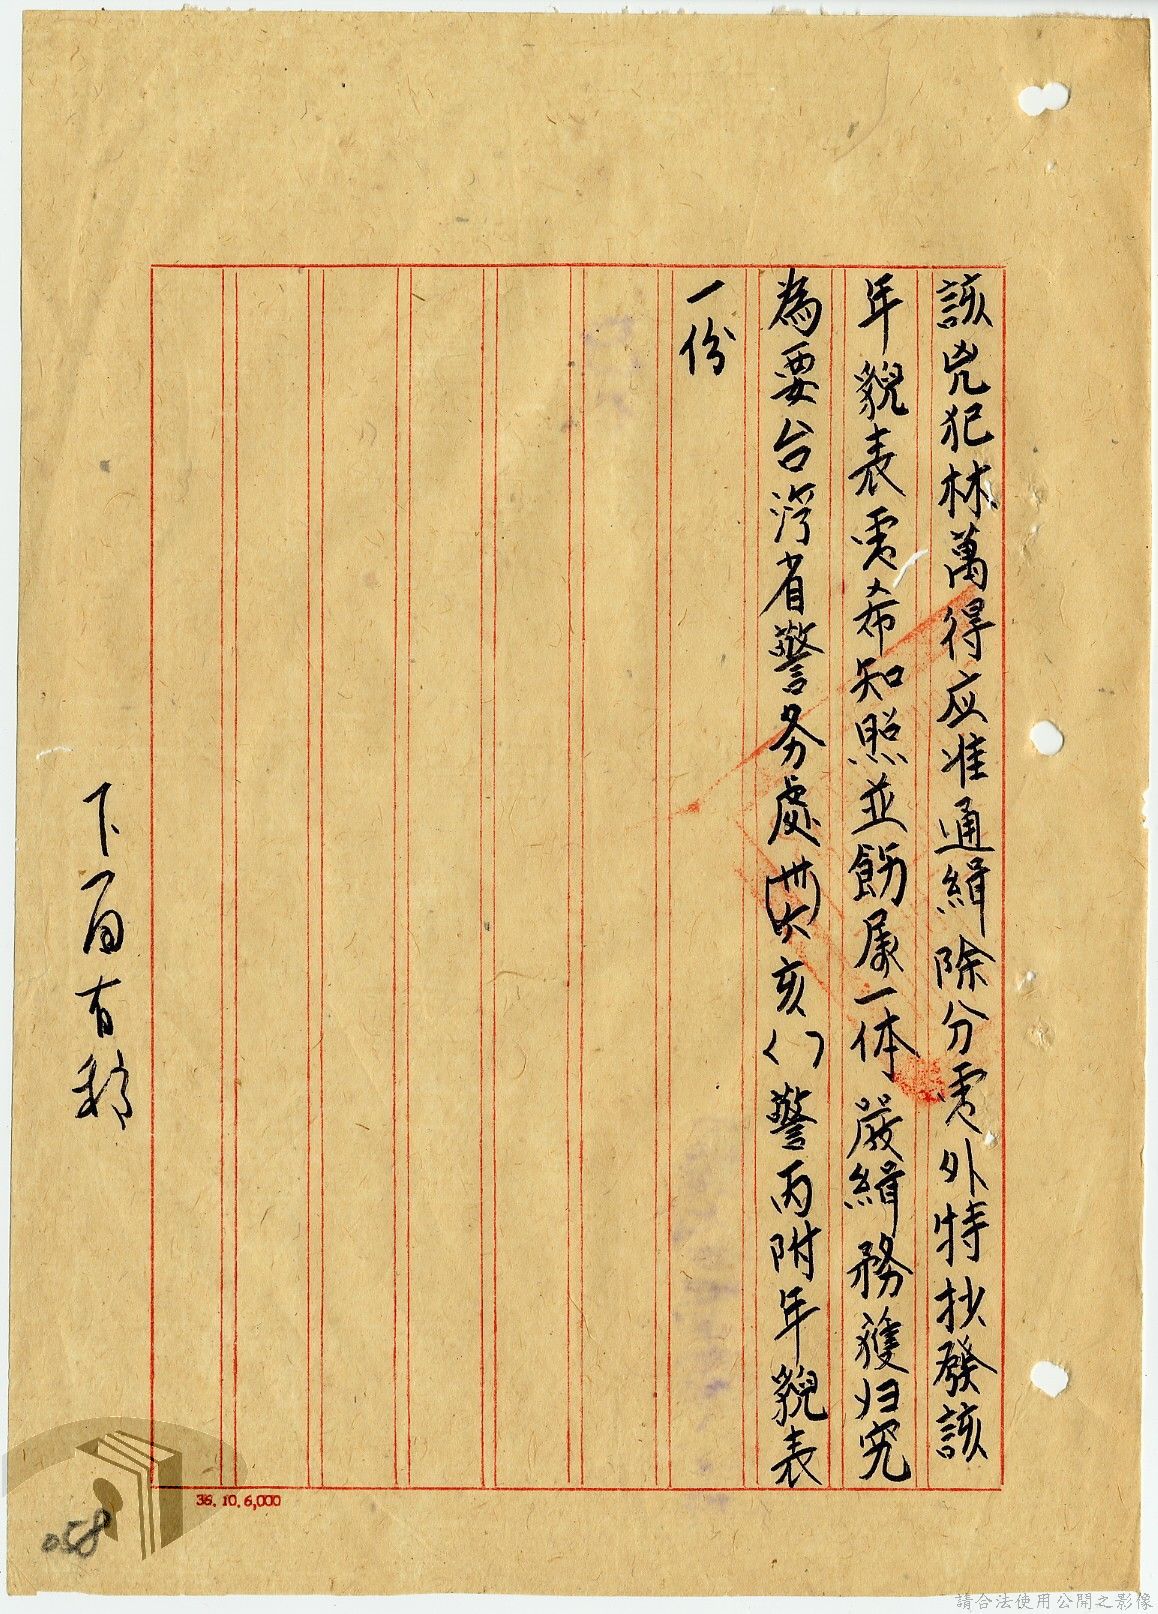 該兇犯林萬得应准通緝除分電外特抄發該
年貌表電希知照並飭屬一体嚴緝務獲归究
為要台湾省警务處(卅六)亥（）警丙附年貌表
一份
下頁有稿
36.10.6,000
058
請合法使用公開之影像